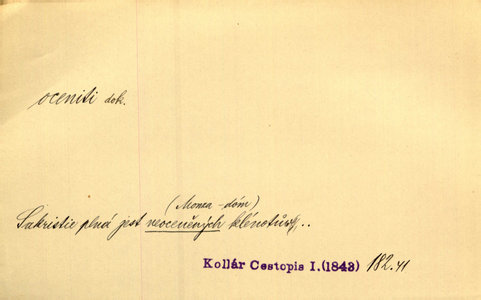 oceniti dok.
(Monza - dóm)
Sakristie plná jest neoceněných klénotův, ..
Kollár Cestopis I.(1843) 182.41